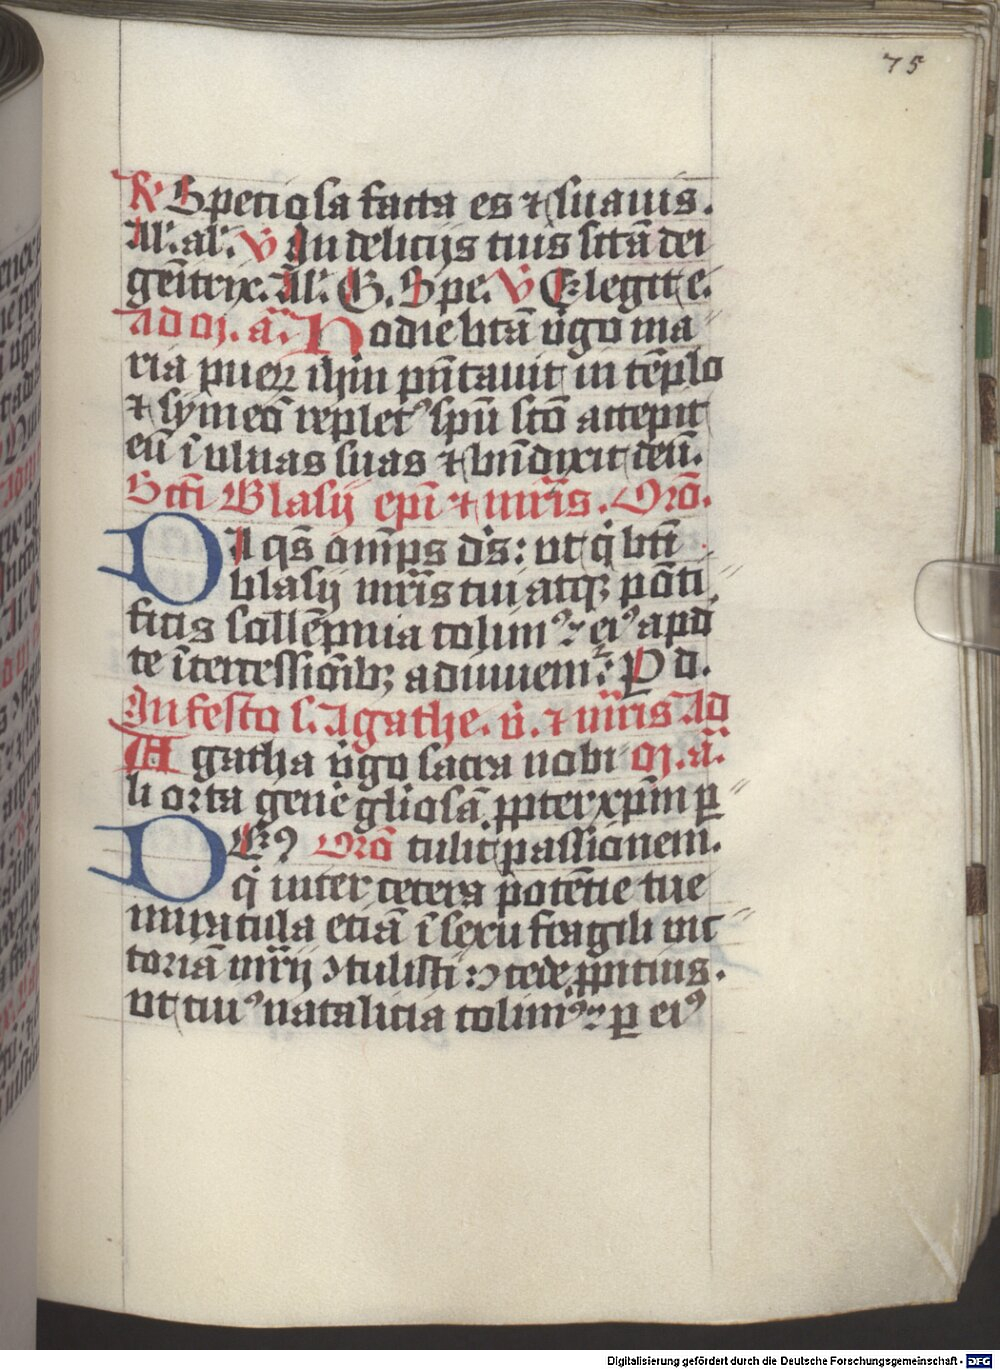 75
R̸ Speciosa facta es ⁊ suauis.
All'. al'. v̄ In deliciis tuis sctā dei
genitrix. All'. G. Spe. v̄ Elegit e.
Ad m̄. a. Hodie btā v̄go ma
ria pueꝝ ihm̄ pn̄tauit in tēplo
⁊ symeō replet⁹ spū scō accepit
eū ī vlnas suas ⁊ bn̄dixit deū.
Scti Blasij epī ⁊ mr̄is. Orō.
Da qs om̄ps ds: ut q̄ bti
blasij mr̄is tui atqꝫ pōti
ficis sollēpnia colim⁹: ei⁹ apd
te ītercessiōibꝫ adiuuem̄: P d.
In festo s. Agathe. v̄. ⁊ mr̄is Ad
Agatha v̄go sacra nobi m̄. a.
li orta gen̄e gl̄iosā ꝓpter xp̄m ꝑ
DEꝰ Orō tulit passionem.
q̄ inter cetera potētie tue
miracula etiā ī sexu fragili vic
toriā mr̄ij ↄtulisti: ↄcede ꝓpitius.
ut cui⁹ natalicia colim⁹: ꝑ ei⁹
Digitalisierung gefördert durch die Deutsche Forschungsgemeinschaft - DFG